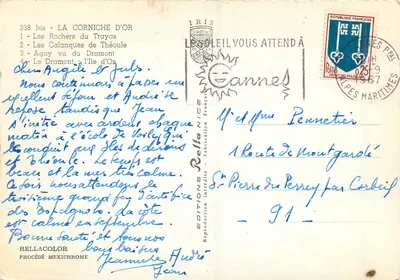 338 bis - LA CORNICHE D'OR
1 - Les Rochers du Trayas
2 - Les Calanques de Théoule
3 - Agay vu du Dramont
4 - Le Dramont : l'Ile d'Or
Chers Angèle et Jules
Nous continuons à passer un
excellent séjour et André se
repose tandis que Jean
s'initie avec ardeur chaque
matin à l'école de voile qui
le conduit aux îles de Lérins
et Théoule. Le temps est
beau et la mer très calme.
Ce soir nous attendons le
troisième grand feu d'artifice
des Espagnols. La côte
est calme en septembre.
Bonne santé et tous nos
bons baisers
Jeannine André
Jean
RELLACOLOR
PROCÉDÉ MEXICHROME
IRIS
EDITIONS Rella NICE
Reproduction interdite - Fabrication Française
LE SOLEIL VOUS ATTEND À
Cannes
ALPES MARITIMES
REPUBLIQUE FRANÇAISE
Mr et Mme Pennetier
1 Route de Montgardé
St Pierre du Perray par Corbeil
- 91 -